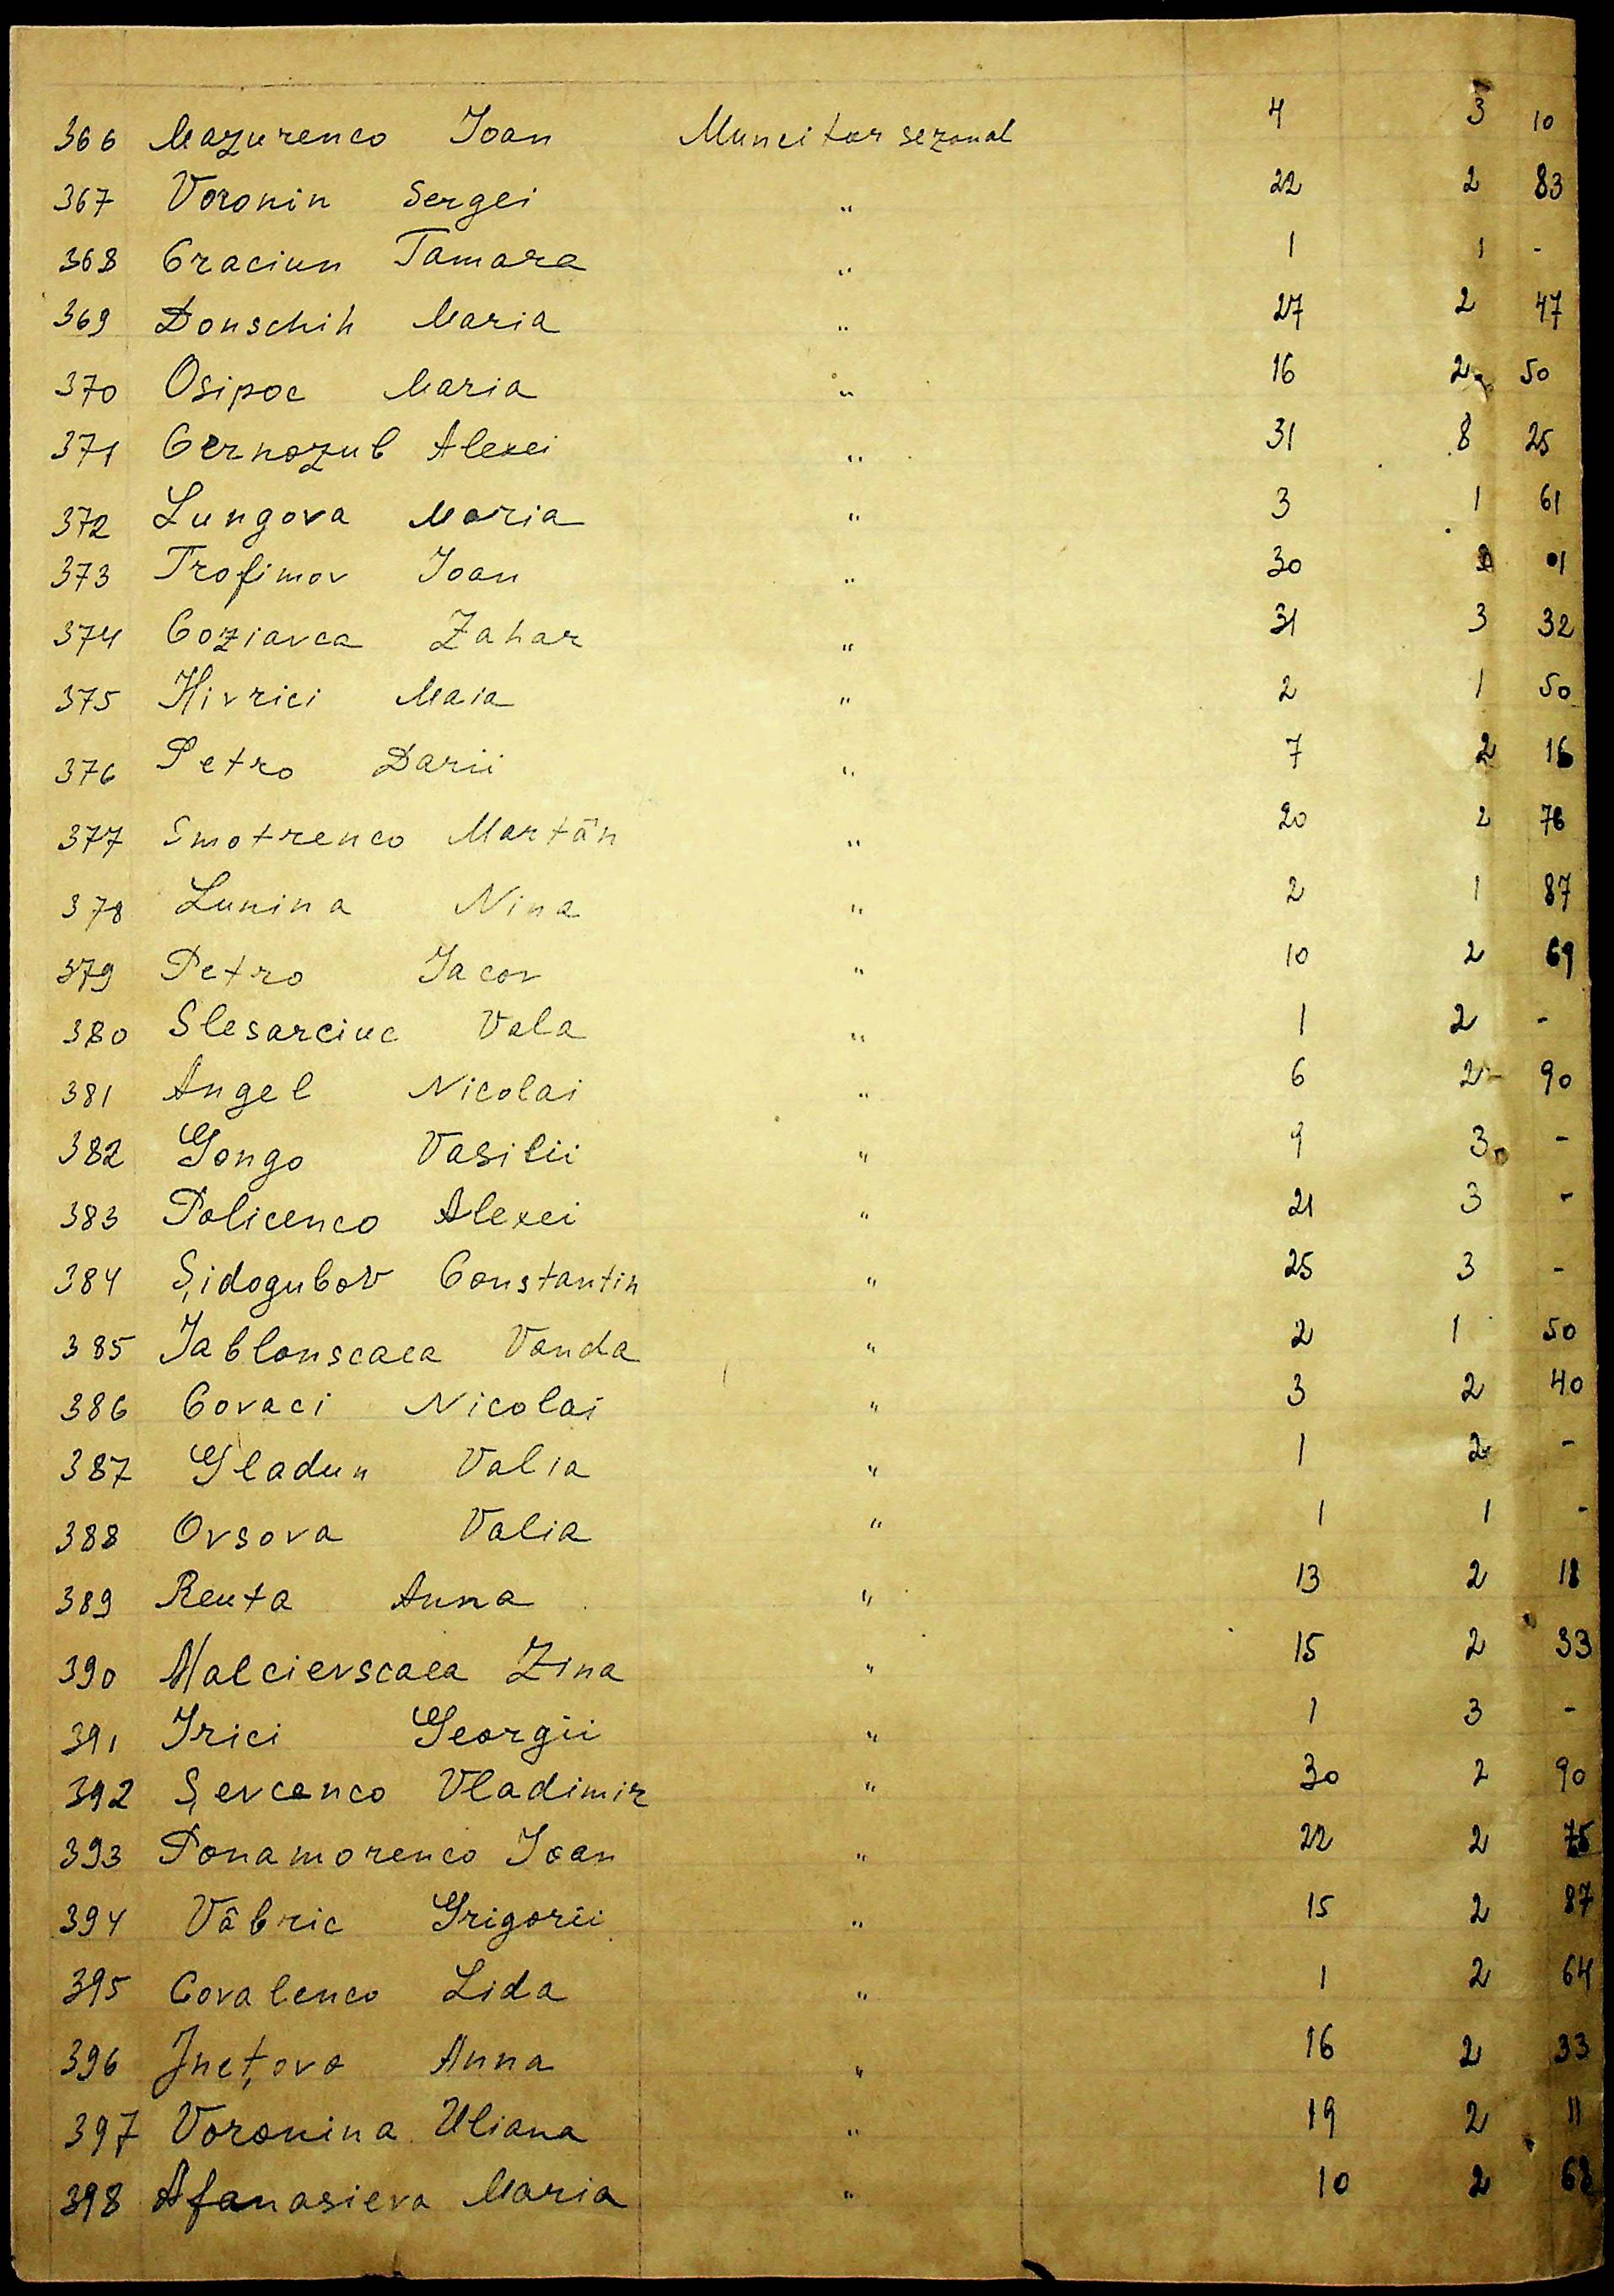 366 Mazurenco Ioan Muncitor sezonal 4 3 10
367 Voronin Sergei " 22 2 83
368 Craciun Tamara " 1 1 -
369 Donschih Maria " 27 2 47
370 Osipoc Maria " 16 2 50
371 Cernozub Alexei " 31 8 25
372 Lungova Maria " 3 1 61
373 Trofimov Ioan " 30 01
374 Coziavca Zahar " 31 3 32
375 Hivrici Maia " 2 1 50
376 Petro Darii " 7 2 16
377 Smotrenco Martân " 20 2 76
378 Lunina Nina " 2 1 87
379 Petro Iacov " 10 2 69
380 Slesarciuc Vala " 1 2 -
381 Angel Nicolai " 6 2 90
382 Gongo Vasilii " 9 3 -
383 Policenco Alexei " 21 3 -
384 Șidogubov Constantin " 25 3 -
385 Iablonscaea Vanda " 2 1 50
386 Covaci Nicolai " 3 2 40
387 Gladun Valia " 1 2 -
388 Ovsova Valia " 1 1 -
389 Reuta Anna " 13 2 18
390 Malcievscaea Zina " 15 2 33
391 Irici Georgii " 1 3 -
392 Șevcenco Vladimir " 30 2 90
393 Ponamorenco Ioan " 22 2 75
394 Vâbric Grigorii " 15 2 87
395 Covalenco Lida " 1 2 64
396 Inețova Anna " 16 2 33
397 Voronina Uliana " 19 2 11
398 Afanasieva Maria " 10 2 68